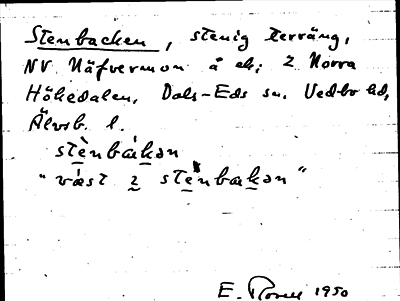 Stenbacken, stenig terräng,
NV Näfvermon å ek; 2 Norra
Höhedalen, Dals-Eds sn. Vedbo hd,
Älvsb. l.
stènbákən
"väst 2 stènbakən"
E. 1950